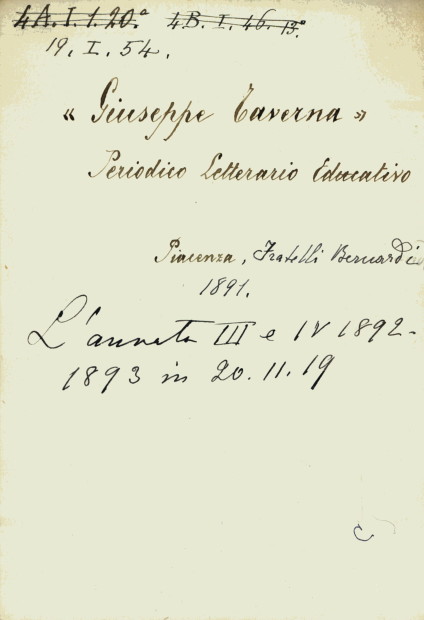 4A.I.1.20ª 4B.I.46.15º
19.I.54.
« Giuseppe Taverna »
Periodico Letterario Educativo
Piacenza, Fratelli Bernardi
1891.
L'annata III e IV 1892-
1893 in 20.11.19
C